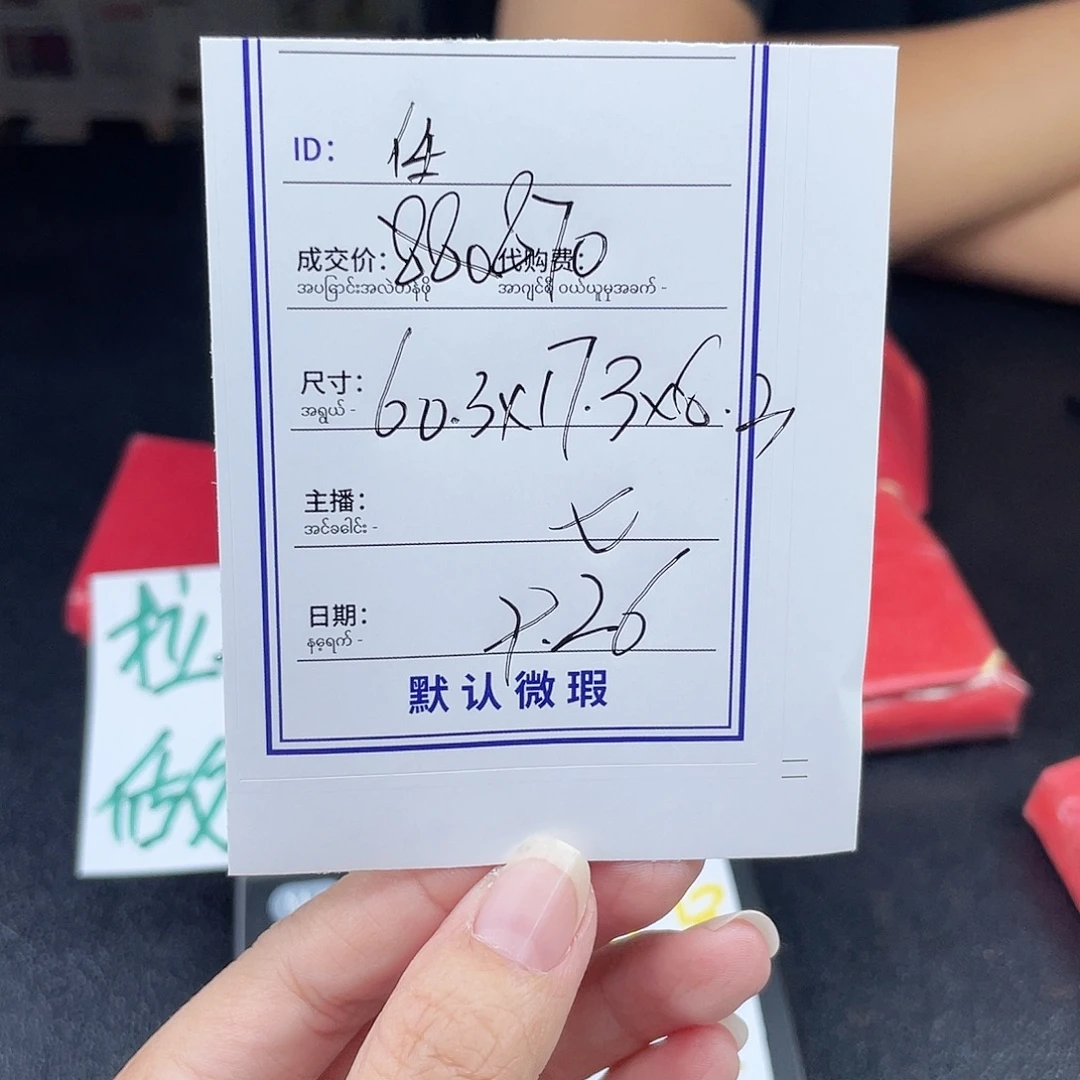 ID: 任
成交价: 880 代购费: 870
အပြောင်းအလဲတန်ဖို အာဂျင်စီ ဝယ်ယူမှုအခက် -
尺寸: 60.3x17.3x6.2
အရွယ် -
主播: 七
အင်ခေါင်း -
日期: 7.26
နေ့ရက် -
默认微瑕
拉
做